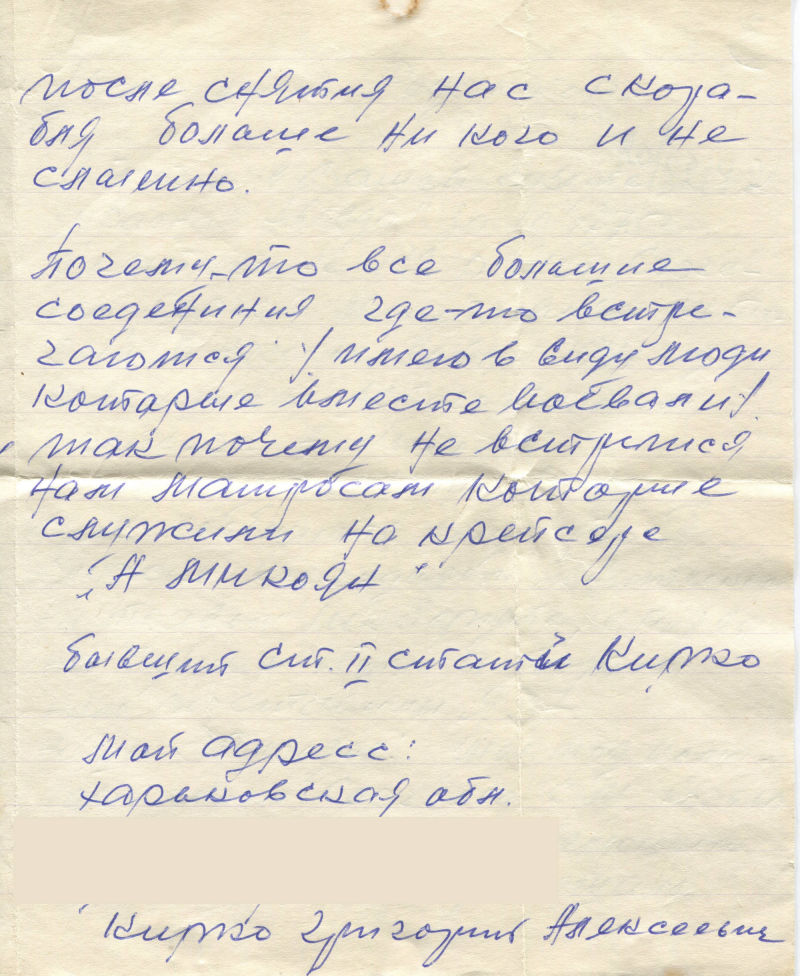 после снятия нас с кора-
бля больше ни кого и не
слышно.
Почему-то все большие
соеденения где-то встре-
чаются /имею в виду люди
которые вместе воевали/.
так почему не встретися
нам матросам которые
служили на крейсере
"А Микоян"
бывший ст. II статьи Киржо
мой адресс:
харьковская обл.
Киржо Григорий Алексеевич